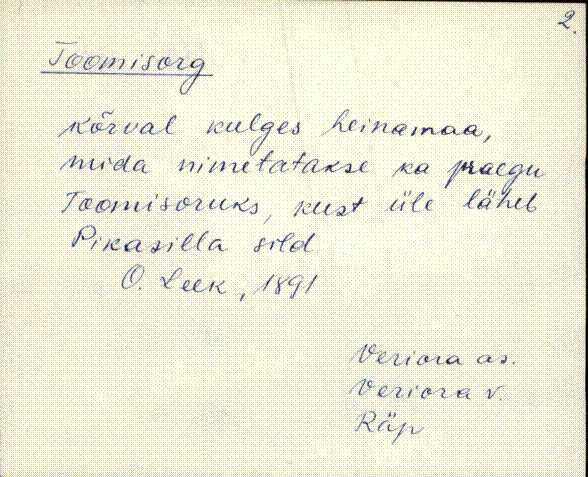 2.
Toomisorg
kõrval kulges heinamaa,
mida nimetatakse ka praegu
Toomisoruks, kust üle läheb
Pikasilla sild
O. Leek, 1891
Veriora as.
Veriora v.
Räp